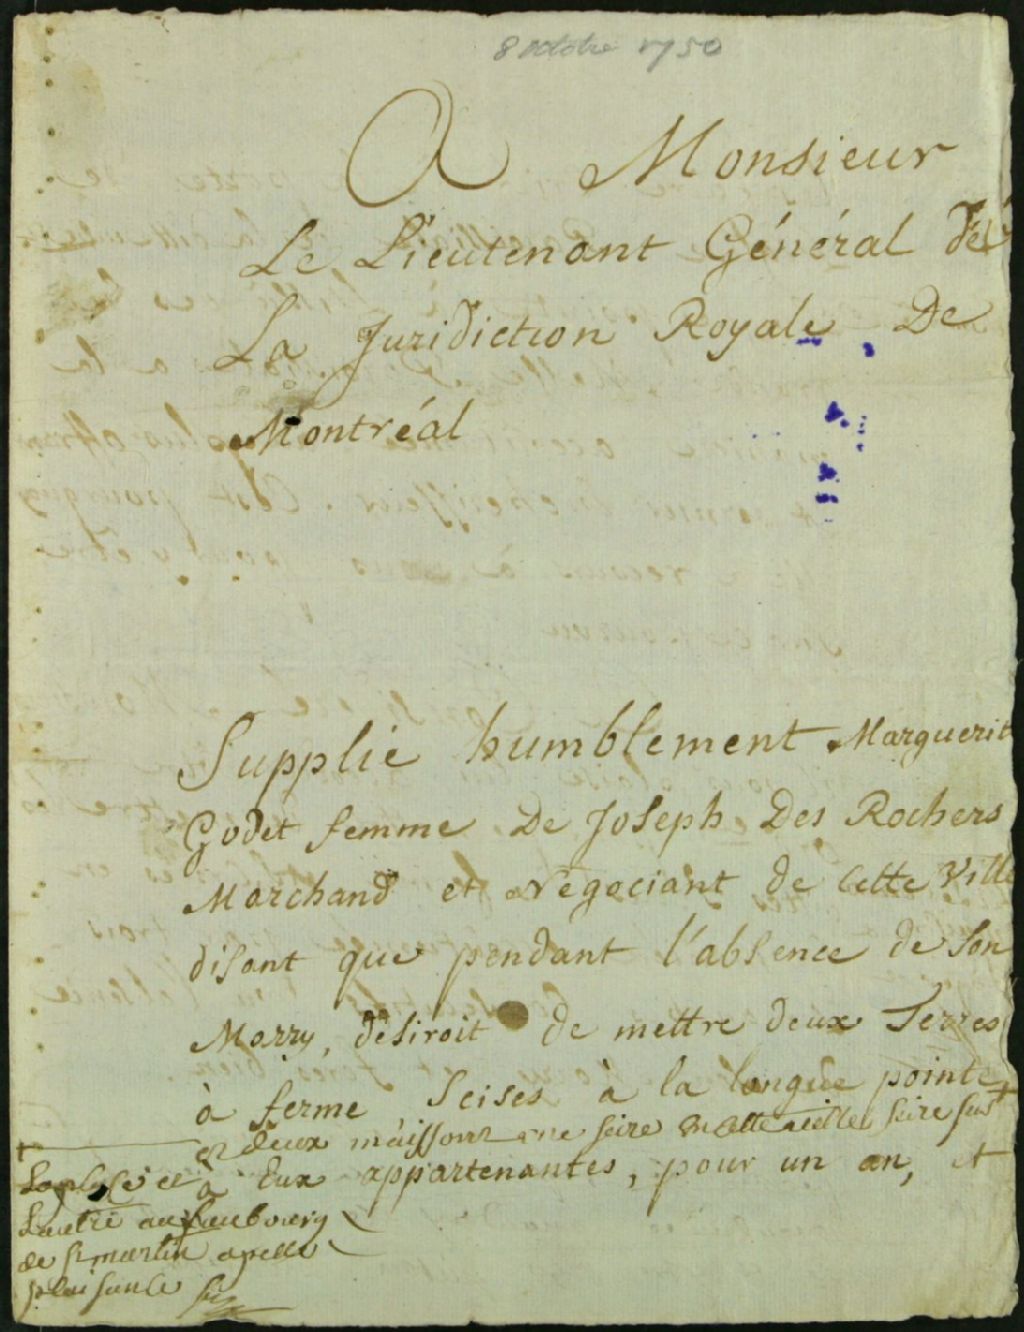 8 octobre 1750
A Monsieur
Le Lieutenant Général de
La Juridiction Royale De
Montréal
Supplie humblement Marguerit
Godet femme De Joseph Des Rochers
Marchand et Négociant de Cette Ville
disant que pendant l'absence de Son
Marry, désiroit de mettre deux Terres
à ferme, Scises à la longue pointe,
et deux maissons une seize en cette ville seize sur
à Eux appartenantes, pour un an, et
La place et
Lautre au faubourg
de St martin apelle
plaisance